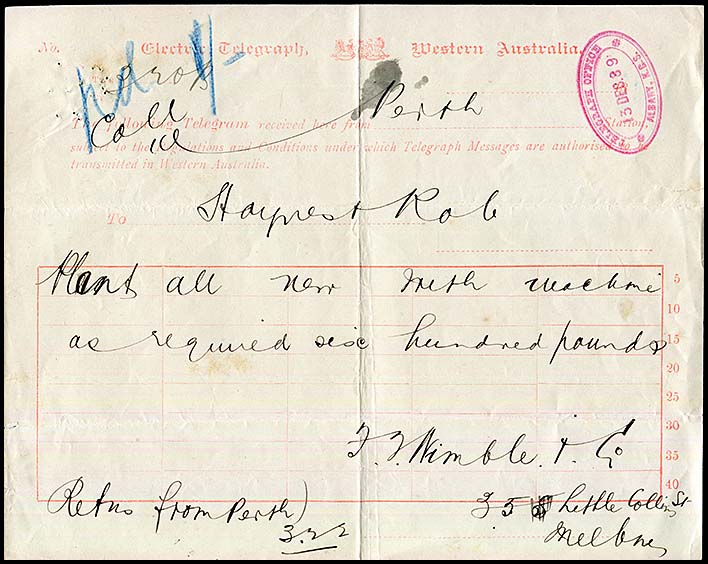 No. Electric Telegraph, Western Australia.
TELEGRAPH OFFICE ALBANY. K.G.S.
3 DEC 89
Coll
Perth
The following Telegram received here from Station
subject to the Regulations and Conditions under which Telegraph Messages are authorised to
transmitted in Western Australia.
To Haynes & Rob
Plant all new with machine 5
10
as required six hundred pounds 15
20
25
30
F. T. Wimble. & Co 35
40
Retns from Perth) 35 Little Collins St
3.22 Melbne